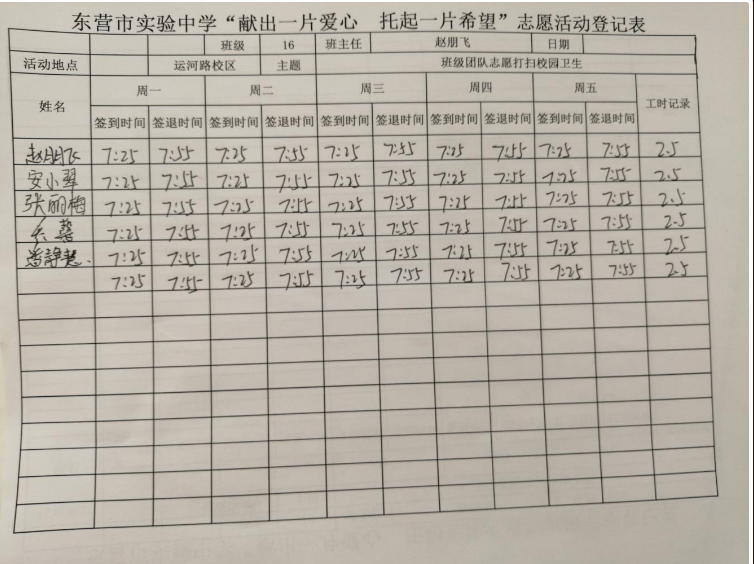 东营市实验中学“献出一片爱心 托起一片希望”志愿活动登记表
班级 16 班主任 赵朋飞 日期
活动地点 运河路校区 主题 班级团队志愿打扫校园卫生
姓名 周一 周二 周三 周四 周五 工时记录
签到时间 签退时间 签到时间 签退时间 签到时间 签退时间 签到时间 签退时间 签到时间 签退时间
赵朋飞 7:25 7:55 7:25 7:55 7:25 7:55 7:25 7:55 7:25 7:55 2.5
安小翠 7:25 7:55 7:25 7:55 7:25 7:55 7:25 7:55 7:25 7:55 2.5
张丽梅 7:25 7:55 7:25 7:55 7:25 7:55 7:25 7:55 7:25 7:55 2.5
7:25 7:55 7:25 7:55 7:25 7:55 7:25 7:55 7:25 7:55 2.5
潘静慧. 7:25 7:55 7:25 7:55 7:25 7:55 7:25 7:55 7:25 7:55 2.5
7:25 7:55 7:25 7:55 7:25 7:55 7:25 7:55 7:25 7:55 2.5